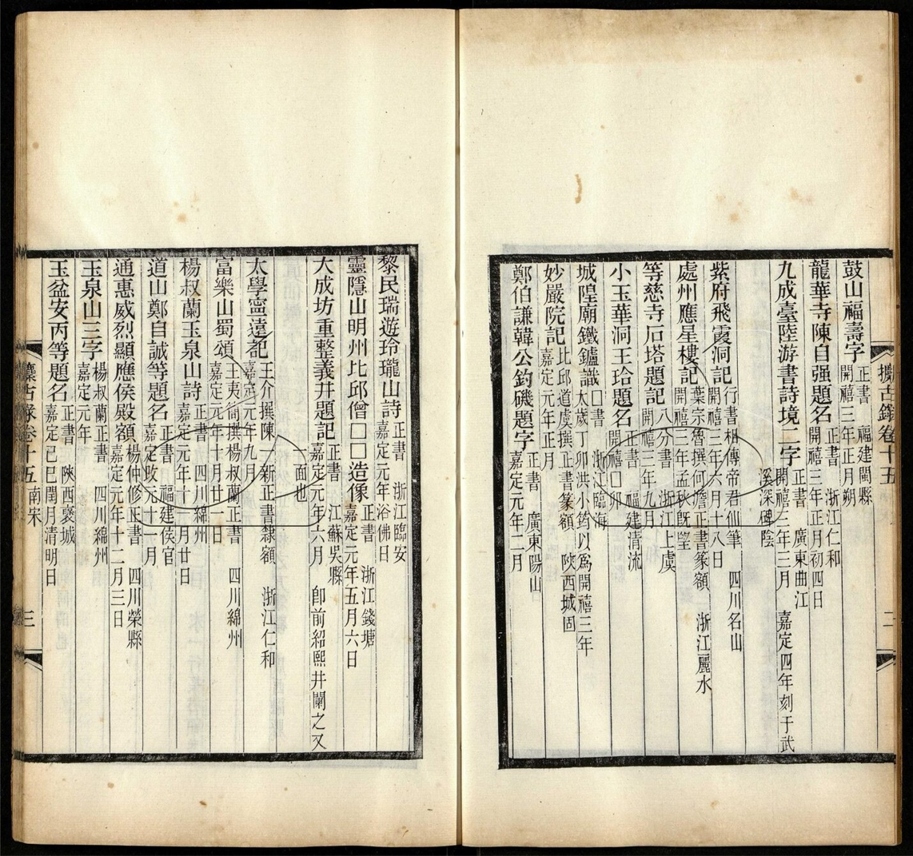 鼓山福壽字 正書 福建閩縣
開禧三年正月朔
龍華寺陳自强題名 正書 浙江仁和
開禧三年正月初四日
九成臺陸游書詩境二字 正書 廣東曲江
開禧三年三月 嘉定四年刻于武
溪深碑陰
紫府飛霞洞記 行書 相傳帝君仙筆 四川名山
開禧三年六月十八日
處州應星樓記 葉宗魯撰何澹正書篆額 浙江麗水
開禧三年孟秋旣望
等慈寺石塔題記 八分書 浙江上虞
開禧三年九月
小玉華洞王玠題名 正書 福建清流
開禧□卯
城隍廟鐵鑪識 □書 浙江臨海
太歲丁卯洪小鈞以爲開禧三年
妙嚴院記 比邱道虔撰正書篆額 陝西城固
嘉定元年正月
鄭伯謙韓公釣磯題字 正書 廣東陽山
嘉定元年二月
攗古錄卷十五
二
黎民瑞遊玲瓏山詩 正書 浙江臨安
嘉定元年浴佛日
靈隱山明州比邱僧□□造像 正書 浙江錢塘
嘉定元年五月六日
大成坊重整義井題記 正書 江蘇吳縣
嘉定元年六月 卽前紹熙井闌之又
一面也
太學寧遠記 王介撰陳一新正書隸額 浙江仁和
嘉定元年九月
富樂山蜀頌 王夷簡撰楊叔蘭正書 四川綿州
嘉定元年十月廿一日
楊叔蘭玉泉山詩 正書 四川綿州
嘉定元年十一月廿日
道山鄭自誠等題名 正書 福建侯官
嘉定改元十一月
通惠威烈顯應侯殿額 楊仲修正書 四川榮縣
嘉定元年十二月三日
玉泉山三字 楊叔蘭正書 四川綿州
嘉定元年
玉盆安丙等題名 正書 陝西褒城
嘉定己巳閏月清明日
攗古錄卷十五 南宋
三